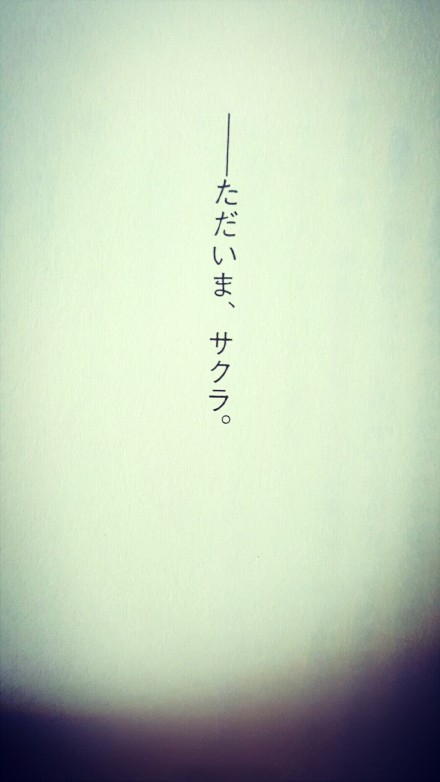 ――ただいま、サクラ。